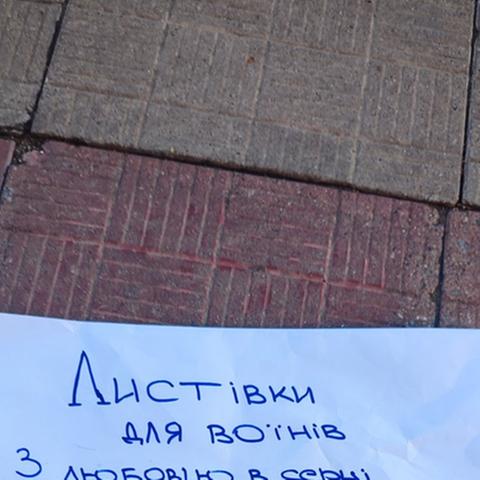 Листівки
для воїнів
З любовію в серці